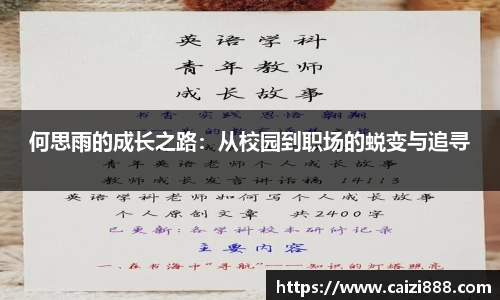 英语学科
青年教师
成长故事
书香 实践 思悟 翱翔
何思雨的成长之路：从校园到职场的蜕变与追寻
青年英语老师个人成长故事
教师成长发言讲话稿 14113
英语学科老师如何写个人成长故事
个人原创文章 共2400字
已更新：各学科校本研修记录
主要内容
一、在书海中“导航”——知识的灯塔照亮
https://www.caizi888.com